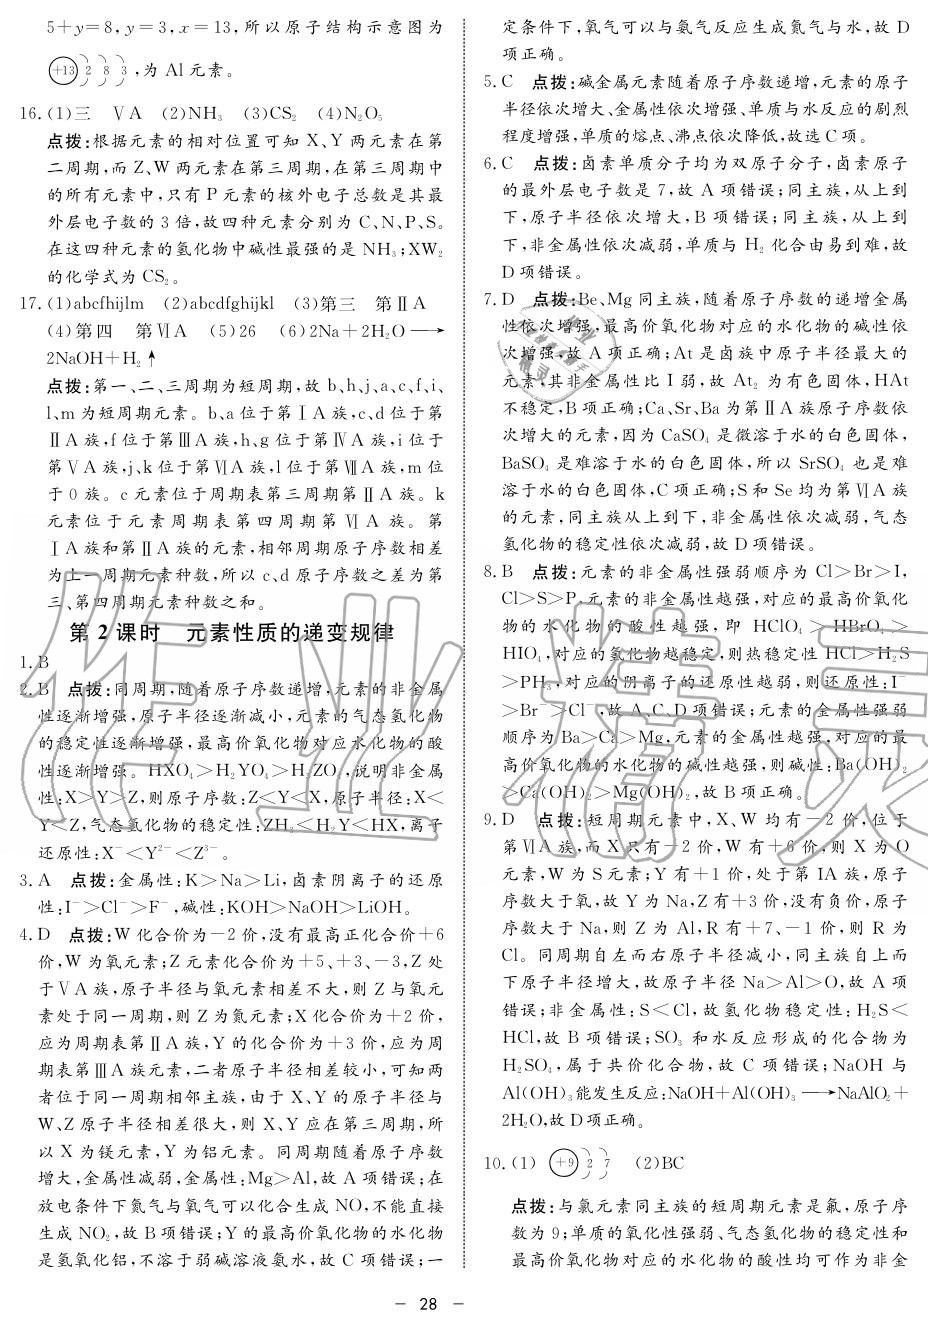 5+y=8,y=3,x=13,所以原子结构示意图为
+13 2 8 3,为 Al 元素。
16.(1)三 ⅤA (2)NH₃ (3)CS₂ (4)N₂O₅
点拨:根据元素的相对位置可知 X、Y 两元素在第
二周期,而 Z、W 两元素在第三周期,在第三周期中
的所有元素中,只有 P 元素的核外电子总数是其最
外层电子数的 3 倍,故四种元素分别为 C、N、P、S。
在这四种元素的氢化物中碱性最强的是 NH₃;XW₂
的化学式为 CS₂。
17.(1)abcfhijlm (2)abcdfghijkl (3)第三 第ⅡA
(4)第四 第ⅥA (5)26 (6)2Na+2H₂O ⟶
2NaOH+H₂↑
点拨:第一、二、三周期为短周期,故 b、h、j、a、c、f、i、
l、m 为短周期元素。b、a 位于第ⅠA 族,c、d 位于第
ⅡA 族,f 位于第ⅢA 族,h、g 位于第ⅣA 族,i 位于
第ⅤA 族,j、k 位于第ⅥA 族,l 位于第ⅦA 族,m 位
于 0 族。c 元素位于周期表第三周期第ⅡA 族。k
元素位于元素周期表第四周期第ⅥA 族。第
ⅠA 族和第ⅡA 族的元素,相邻周期原子序数相差
为上一周期元素种数,所以 c、d 原子序数之差为第
三、第四周期元素种数之和。
第 2 课时 元素性质的递变规律
1. B
2. B 点拨:同周期,随着原子序数递增,元素的非金属
性逐渐增强,原子半径逐渐减小,元素的气态氢化物
的稳定性逐渐增强,最高价氧化物对应水化物的酸
性逐渐增强。HXO₄>H₂YO₄>H₃ZO₄,说明非金属
性:X>Y>Z,则原子序数:Z<Y<X,原子半径:X<
Y<Z,气态氢化物的稳定性:ZH₃<H₂Y<HX,离子
还原性:X⁻<Y²⁻<Z³⁻。
3. A 点拨:金属性:K>Na>Li,卤素阴离子的还原
性:I⁻>Cl⁻>F⁻,碱性:KOH>NaOH>LiOH。
4. D 点拨:W 化合价为-2 价,没有最高正化合价+6
价,W 为氧元素;Z 元素化合价为+5、+3、-3,Z 处
于ⅤA 族,原子半径与氧元素相差不大,则 Z 与氧元
素处于同一周期,则 Z 为氮元素;X 化合价为+2 价,
应为周期表第ⅡA 族,Y 的化合价为+3 价,应为周
期表第ⅢA 族元素,二者原子半径相差较小,可知两
者位于同一周期相邻主族,由于 X、Y 的原子半径与
W、Z 原子半径相差很大,则 X、Y 应在第三周期,所
以 X 为镁元素,Y 为铝元素。同周期随着原子序数
增大,金属性减弱,金属性:Mg>Al,故 A 项错误;在
放电条件下氮气与氧气可以化合生成 NO,不能直接
生成 NO₂,故 B 项错误;Y 的最高价氧化物的水化物
是氢氧化铝,不溶于弱碱溶液氨水,故 C 项错误;一
定条件下,氧气可以与氨气反应生成氮气与水,故 D
项正确。
5. C 点拨:碱金属元素随着原子序数递增,元素的原子
半径依次增大、金属性依次增强、单质与水反应的剧烈
程度增强,单质的熔点、沸点依次降低,故选 C 项。
6. C 点拨:卤素单质分子均为双原子分子,卤素原子
的最外层电子数是 7,故 A 项错误;同主族,从上到
下,原子半径依次增大,B 项错误;同主族,从上到
下,非金属性依次减弱,单质与 H₂ 化合由易到难,故
D 项错误。
7. D 点拨:Be、Mg 同主族,随着原子序数的递增金属
性依次增强,最高价氧化物对应的水化物的碱性依
次增强,故 A 项正确;At 是卤族中原子半径最大的
元素,其非金属性比 I 弱,故 At₂ 为有色固体,HAt
不稳定,B 项正确;Ca、Sr、Ba 为第ⅡA 族原子序数依
次增大的元素,因为 CaSO₄ 是微溶于水的白色固体,
BaSO₄ 是难溶于水的白色固体,所以 SrSO₄ 也是难
溶于水的白色固体,C 项正确;S 和 Se 均为第ⅥA 族
的元素,同主族从上到下,非金属性依次减弱,气态
氢化物的稳定性依次减弱,故 D 项错误。
8. B 点拨:元素的非金属性强弱顺序为 Cl>Br>I,
Cl>S>P,元素的非金属性越强,对应的最高价氧化
物的水化物的酸性越强,即 HClO₄>HBrO₄>
HIO₄,对应的氢化物越稳定,则热稳定性 HCl>H₂S
>PH₃,对应的阴离子的还原性越弱,则还原性:I⁻
>Br⁻>Cl⁻,故 A、C、D 项错误;元素的金属性强弱
顺序为 Ba>Ca>Mg,元素的金属性越强,对应的最
高价氧化物的水化物的碱性越强,则碱性:Ba(OH)₂
>Ca(OH)₂>Mg(OH)₂,故 B 项正确。
9. D 点拨:短周期元素中,X、W 均有-2 价,位于
第ⅥA 族,而 X 只有-2 价,W 有+6 价,则 X 为 O
元素,W 为 S 元素;Y 有+1 价,处于第 IA 族,原子
序数大于氧,故 Y 为 Na,Z 有+3 价,没有负价,原子
序数大于 Na,则 Z 为 Al,R 有+7、-1 价,则 R 为
Cl。同周期自左而右原子半径减小,同主族自上而
下原子半径增大,故原子半径 Na>Al>O,故 A 项
错误;非金属性:S<Cl,故氢化物稳定性:H₂S<
HCl,故 B 项错误;SO₃ 和水反应形成的化合物为
H₂SO₄,属于共价化合物,故 C 项错误;NaOH 与
Al(OH)₃能发生反应:NaOH+Al(OH)₃ ⟶NaAlO₂+
2H₂O,故 D 项正确。
10.(1) +9 2 7 (2)BC
点拨:与氯元素同主族的短周期元素是氟,原子序
数为 9;单质的氧化性强弱、气态氢化物的稳定性和
最高价氧化物对应的水化物的酸性均可作为非金
— 28 —
作业精灵